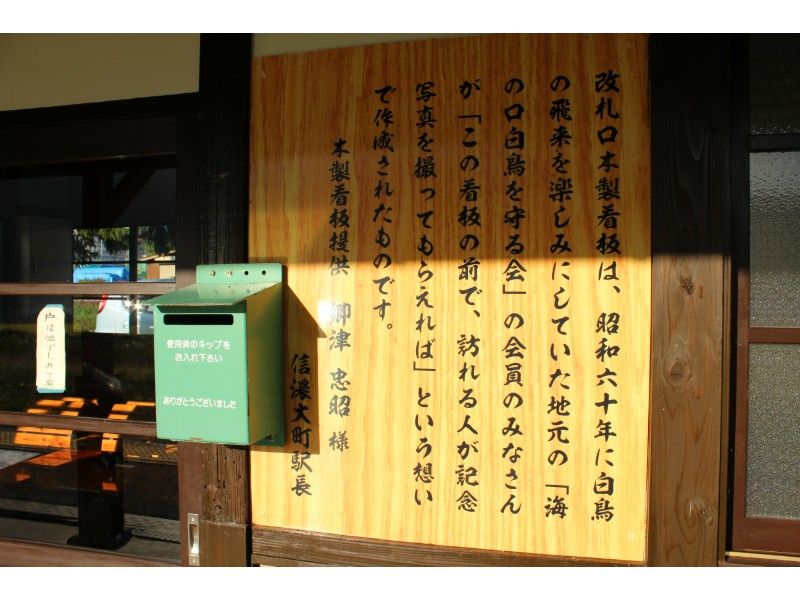 改札口木製看板は、昭和六十年に白鳥
の飛来を楽しみにしていた地元の「海
の口白鳥を守る会」の会員のみなさん
が「この看板の前で、訪れる人が記念
写真を撮ってもらえれば」という想い
で作成されたものです。
木製看板提供 郷津 忠昭 様
信濃大町駅長
使用済のキップを
お入れ下さい
ありがとうございました